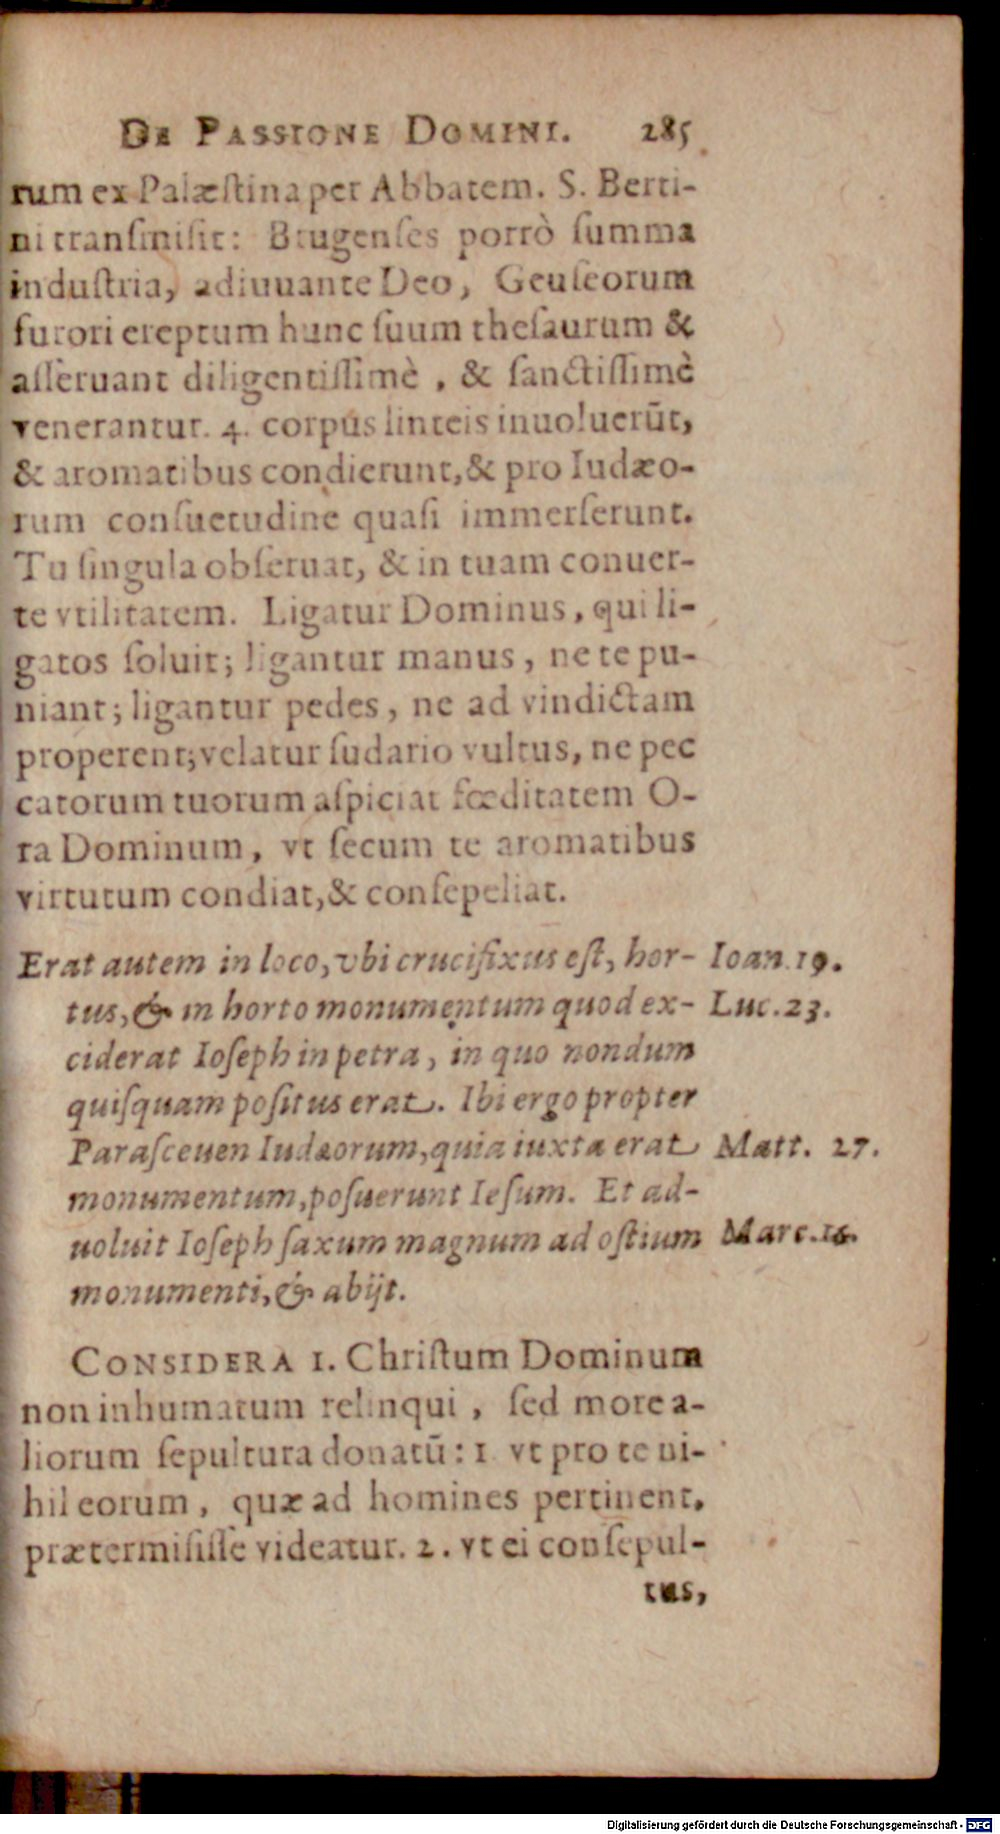 De Passione Domini. 285
rum ex Palæſtina per Abbatem. S. Berti-
ni tranſmiſit: Brugenſes porrò ſumma
induſtria, adiuuante Deo, Geuſeorum
furori ereptum hunc ſuum theſaurum &
aſſeruant diligentiſſimè, & ſanctiſſimè
venerantur. 4. corpus linteis inuoluerũt,
& aromatibus condierunt, & pro Iudæo-
rum conſuetudine quaſi immerſerunt.
Tu ſingula obſeruat, & in tuam conuer-
te vtilitatem. Ligatur Dominus, qui li-
gatos ſoluit; ligantur manus, ne te pu-
niant; ligantur pedes, ne ad vindictam
properent; velatur ſudario vultus, ne pec
catorum tuorum aſpiciat fœditatem O-
ra Dominum, vt ſecum te aromatibus
virtutum condiat, & conſepeliat.
Erat autem in loco, vbi crucifixus eſt, hor- Ioan. 19.
tus, & in horto monumentum quod ex- Luc. 23.
ciderat Ioſeph in petra, in quo nondum
quiſquam poſitus erat. Ibi ergo propter
Paraſceuen Iudæorum, quia iuxta erat Matt. 27.
monumentum, poſuerunt Ieſum. Et ad-
uoluit Ioſeph ſaxum magnum ad oſtium Marc. 16.
monumenti, & abijt.
Considera 1. Chriſtum Dominum
non inhumatum relinqui, ſed more a-
liorum ſepultura donatũ: 1 vt pro te ni-
hil eorum, quæ ad homines pertinent,
prætermiſiſſe videatur. 2. vt ei conſepul-
tus,
Digitalisierung gefördert durch die Deutsche Forschungsgemeinschaft - DFG